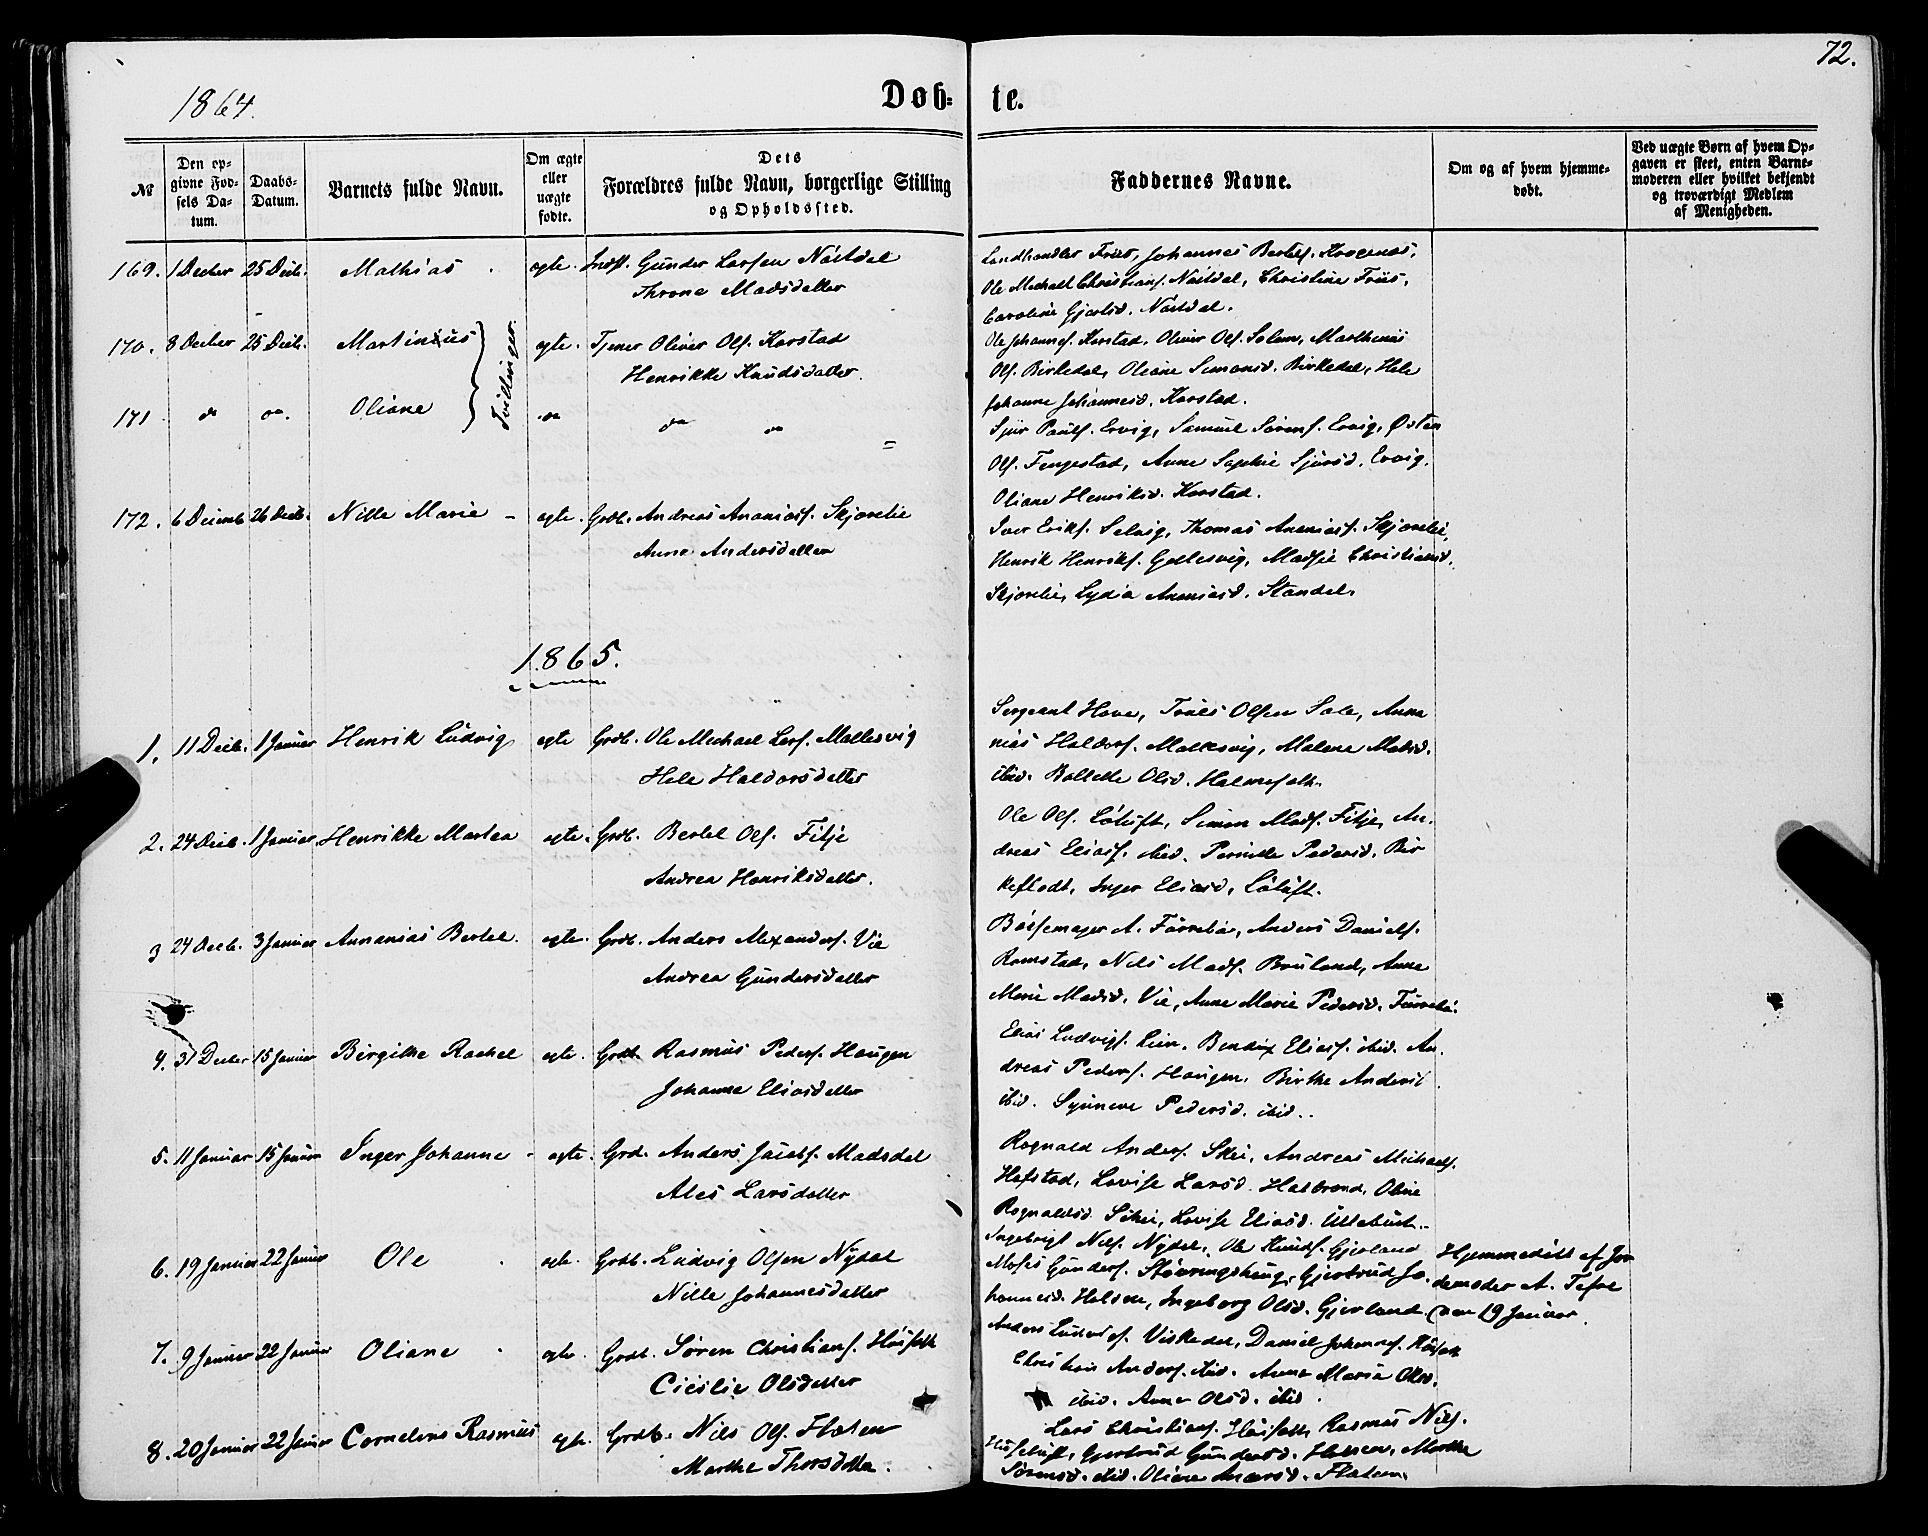 72.
1864.
Døb- te.
№
Den opgivne Fødsels Datum.
Daabs-Datum.
Barnets fulde Navn.
Om ægte eller uægte fødte.
Dets Forældres fulde Navn, borgerlige Stilling og Opholdssted.
Faddernes Navne.
Om og af hvem hjemmedøbt.
Ved uægte Børn af hvem Opgaven er skeet, enten Barnemoderen eller hvilket bekjendt og troværdigt Medlem af Menigheden.
169. 1 Decber 25 Decb. Mathias ægte. Indst. Gunder Larsen Nåstdal
Throne Madsdatter
Landhandler Friis, Johannes Bertels. Krogenæs,
Ole Michael Christians. Nåstdal, Christine Friis,
Caroline Gjertsd. Nåstdal.
170. 8 Decber 25 Decb. Martinius Tvillinger. ægte. Tjener Oliver Ols. Korstad
Henrikke Knudsdatter.
Ole Johannes. Korstad, Oliver Ols. Solem, Marthinus
Ols. Birkedal, Oliane Simonsd. Birkedal, Hele
Johanne Johannesd. Korstad.
171 do do. Oliane do do do
Sjur Pauls. Ervig, Samuel Sørens. Ervig, Østen
Ols. Fengestad, Anne Sophie Sjursd. Ervig,
Oliane Henriksd. Korstad.
172. 6 Decemb 26 Decb. Nille Marie ægte. Grdb. Andreas Ananiass. Skjorelie
Anne Andersdatter
Iver Eriks. Selvig, Thomas Ananiass. Skjorelie,
Henrik Henriks. Gallesvig, Madsie Christiansd.
Skjorelie, Lydia Ananiasd. Standal.
1865.
1. 11 Decb. 1 Januar Henrik Ludvig ægte Grdb. Ole Michael Lars. Mallesvig
Hele Haldorsdatter
Sergeant Hove, Truls Olsen Sale, Anna
nias Haldors. Mallesvig, Malene Madsd.
ibid. Bollette Olsd.
2. 24 Decb. 1 Januar Henrikke Martea ægte. Grdb. Bertel Ols. Fitje
Andrea Henriksdatter.
Ole Ols. Løtuft, Simon Mads. Fitje, An-
dreas Eliass. ibid. Pernille Pedersd. Bir
keflodt, Inger Eliasd, Løtuft.
3 24 Decb. 3 Januar Annanias Bertel. ægte. Grdb. Anders Alexanders. Vie
Andrea Gundersdatter
Bøssemager A. Farsebøe, Anders Daniels.
Ramstad, Nils Mads. Bruland, Anne
Marie Madsd. Vie, Anne Marie Pedersd.
4. 31 Decber 15 Januar Birgithe Rachel ægte. Grdb. Rasmus Peders. Haugen
Johanne Eliasdatter
Elias Ludvigs. Lien, Bendix Eliass. ibid. An-
dreas Peders. Haugen, Birthe Andersd
ibid. Synneve Pedersd. ibid.
5. 11 Januar 15 Januar Inger Johanne ægte. Grd. Anders Jacobs. Madsdal
Ales Larsdatter
Rognald Anders. Skei, Andreas Michaels.
Hafstad, Lovise Larsd. Halbrend, Oline
Rognaldsd. Skei, Lovise Eliasd.
6. 19 Januar 22 Januar Ole ægte. Grdb. Ludvig Olsen Nydal
Nille Johannesdatter
Ingebrigt Nils. Nydal, Ole Knuds. Gjerland
Moses Gunders. Støvringshaug, Gjertrud Jo-
hannesd. Holsen, Ingeborg Olsd. Gjerland.
Hjemmedøbt af Jor
demoder A. Tefre
den 19 Januar.
7. 9 Januar 22 Januar Oliane ægte. Grdb. Søren Christians. Huseth
Cicilie Olsdatter
Anders Ludvigs. Viskedal, Daniel Johannes. Huseth
Christian Anders. ibid. Anne Maria Olsd.
ibid. Anne Olsd. ibid.
8. 20 Januar 22 Januar Cornelius Rasmus ægte. Grdb. Nils Ols. Flaten
Marthe Thorsdatter.
Lars Christians. Huseth, Rasmus Nils.
Gjertrud Gundersd. Holsen, Marthe
Sørensd. ibid. Oliane Flaten.